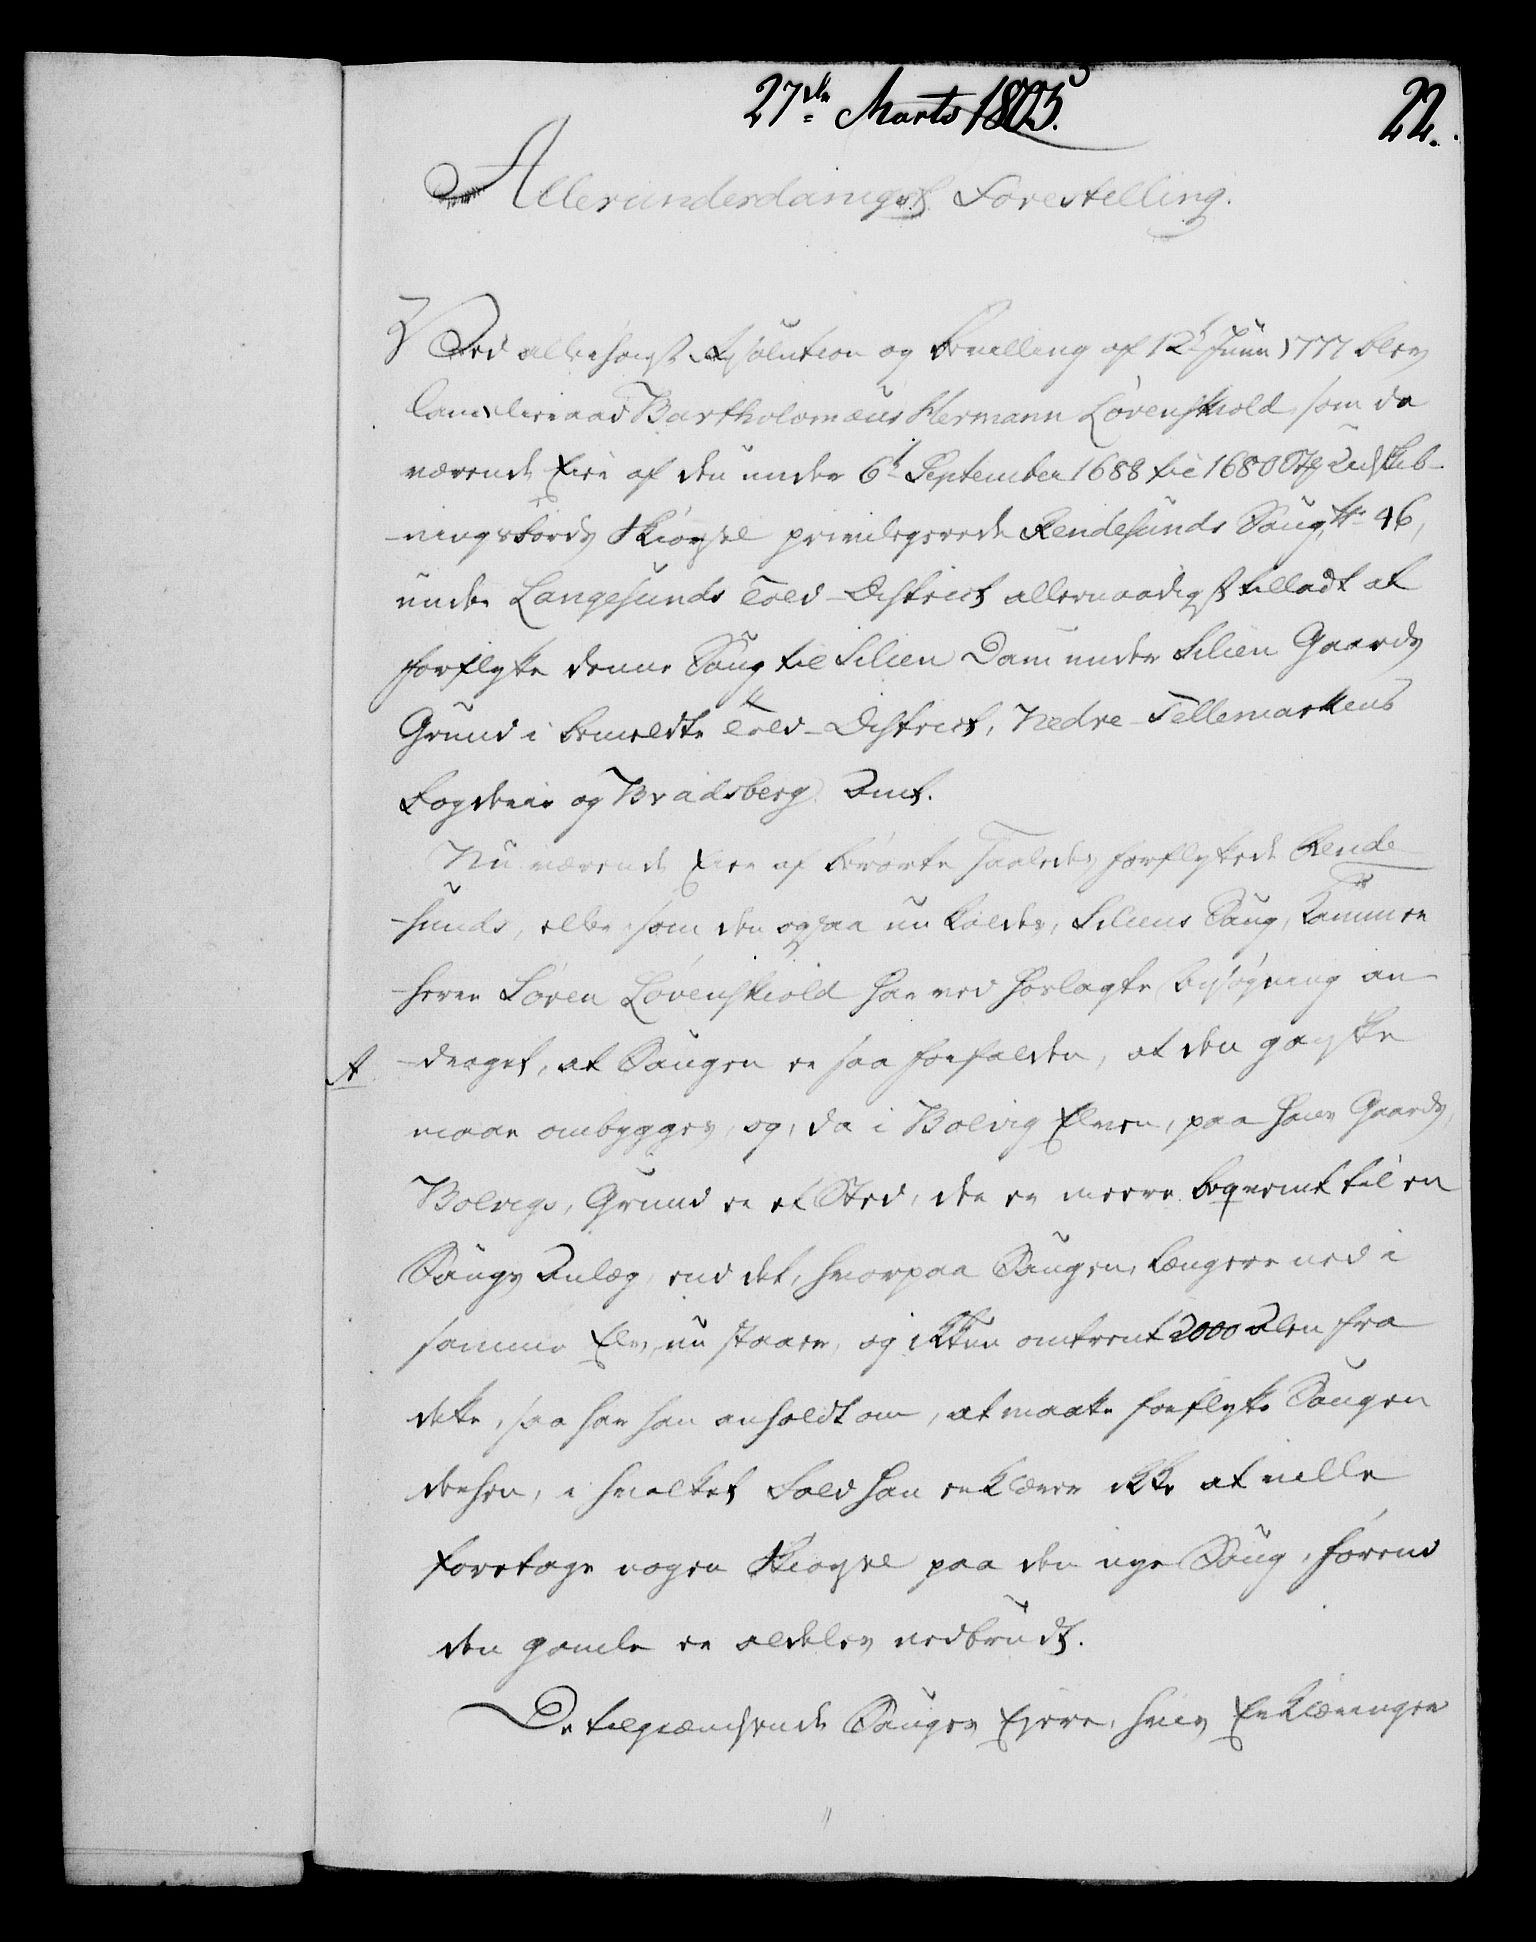 27de Marts 1805.
22.
Allerunderdanigst Forestelling.
Ved allerhøieste Resolution og Bevilling af 12t Junii 1777 blev
Cancelieraad Bartholomæus Hermann Løvenskiold, som da
værende Eier af den under 6t September 1688 til 1680 Tylter
Bords Skiørsel privilegerede Rendesunds Saug, Nr 46,
under Langesunds Told-District allernaadigst tilladt at
forflytte denne Saug til Silien Dam under Silien Gaards
Grund i bemeldte Told-District, Nedre-Tellemarkens
Fogderie og Bradsberg Amt.
Nu værende Eier af berørte saaledes forflyttede Rende-
-sunds, eller som den ogsaa nu kaldes, Siliens Saug, Kammer
-herre Søren Løvenskiold har ved forlagte Ansøgning an-
A
-draget, at Saugen er saa forfalden, at den ganske
maae ombygges, og, da i Bolvig Elven, paa hans Gaards,
Bolvigs, Grund er et Sted, der er meere beqvemt til en
Saugs Anlæg, end det, hvorpaa Saugen, længere ned i
samme Elv, nu staaer, og ikkun omtrent 2000 Alen fra
dette, saa har han anholdt om, at maatte forflytte Saugen
derhen, i hvilket Fald han erklærer ikke at ville
foretage nogen Skiørsel paa den nye Saug, førend
den gamle er aldeles nedbrudt.
De tilgrændsende Sauges Eiere, hvis Erklæringer